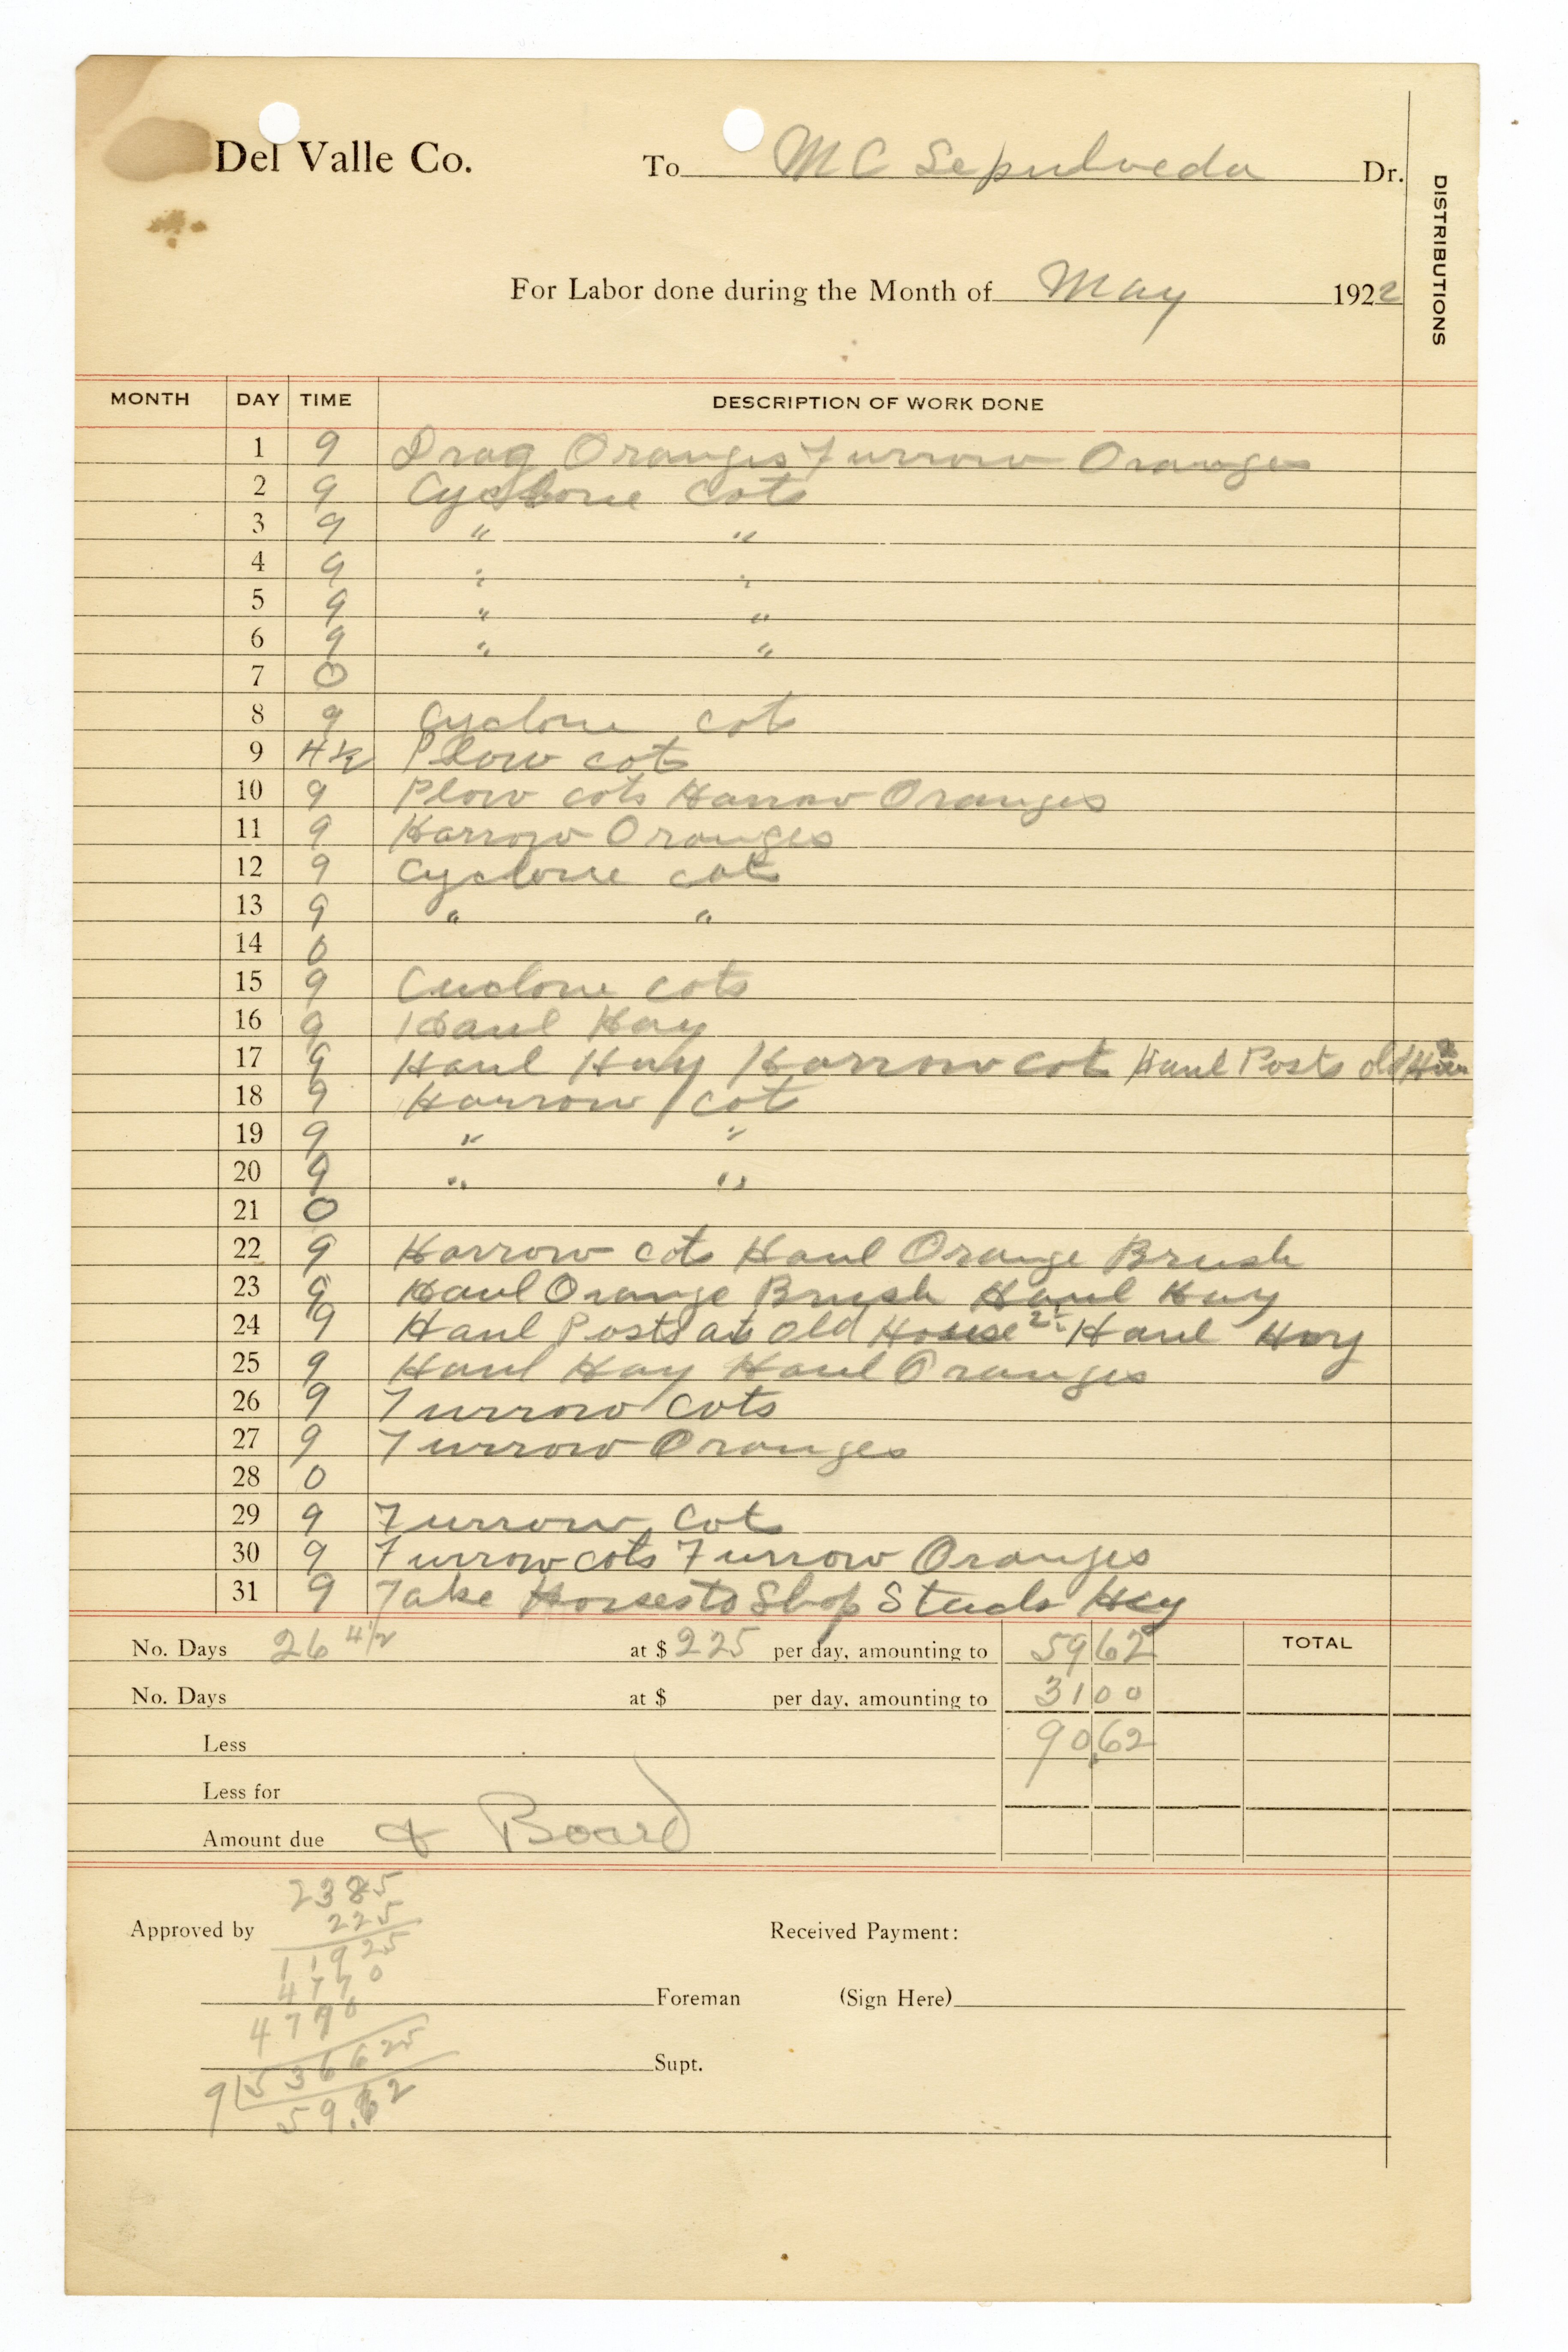 Del Valle Co. To M C Sepulveda Dr.
DISTRIBUTIONS
For Labor done during the Month of May 1922
MONTH DAY TIME DESCRIPTION OF WORK DONE
1 9 Drag Oranges Furrow Oranges
2 9 Cyclone Cots
3 9 " "
4 9 " "
5 9 " "
6 9 " "
7 0
8 9 Cyclone cots
9 4½ Plow cots
10 9 Plow cots Harrow Oranges
11 9 Harrow Oranges
12 9 Cyclone cots
13 9 " "
14 0
15 9 Cyclone cots
16 9 Haul Hay
17 9 Haul Hay Harrow cots Haul Posts old
18 9 Harrow cots
19 9 " "
20 9 " "
21 0
22 9 Harrow cots Haul Orange Brush
23 9 Haul Orange Brush Haul Hay
24 9 Haul Posts at old House Haul Hay
25 9 Haul Hay Haul Oranges
26 9 Furrow Cots
27 9 Furrow Oranges
28 0
29 9 Furrow Cots
30 9 Furrow cots Furrow Oranges
31 9 Take Horses to Shop Hay
No. Days 26 4½ at $ 225 per day, amounting to 59 62 TOTAL
No. Days at $ per day, amounting to 31 00
Less 90.62
Less for
Amount due & Board
2385
225
Approved by Received Payment:
11925
4770
Foreman (Sign Here)
4770
Supt.
9 536625
59.62